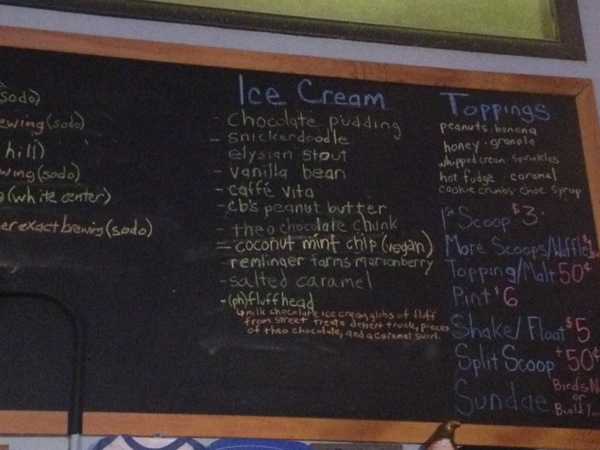 sodo)
ewing (sodo)
hill)
wing (sodo)
(white center)
er exact brewing (sodo)
Ice Cream
- chocolate pudding
- snickerdoodle
elysian stout
- vanilla bean
- caffé vita
- cb's peanut butter
- theo chocolate chunk
- coconut mint chip (vegan)
remlinger farms marionberry
- salted caramel
- (ph)fluffhead
↳ milk chocolate ice cream, globs of fluff
from street treats dessert truck, pieces
of theo chocolate, and a caramel swirl.
Toppings
peanuts · banana
honey · granola
whipped cream · sprinkles
hot fudge caramel
cookie crumbs · choc syrup
1st Scoop $3.
More Scoops/Waffle $1
Topping/Malt 50¢
Pint $6
Shake/Float $5
Split Scoop +50¢
Sundae Bird's N
or
Build Y